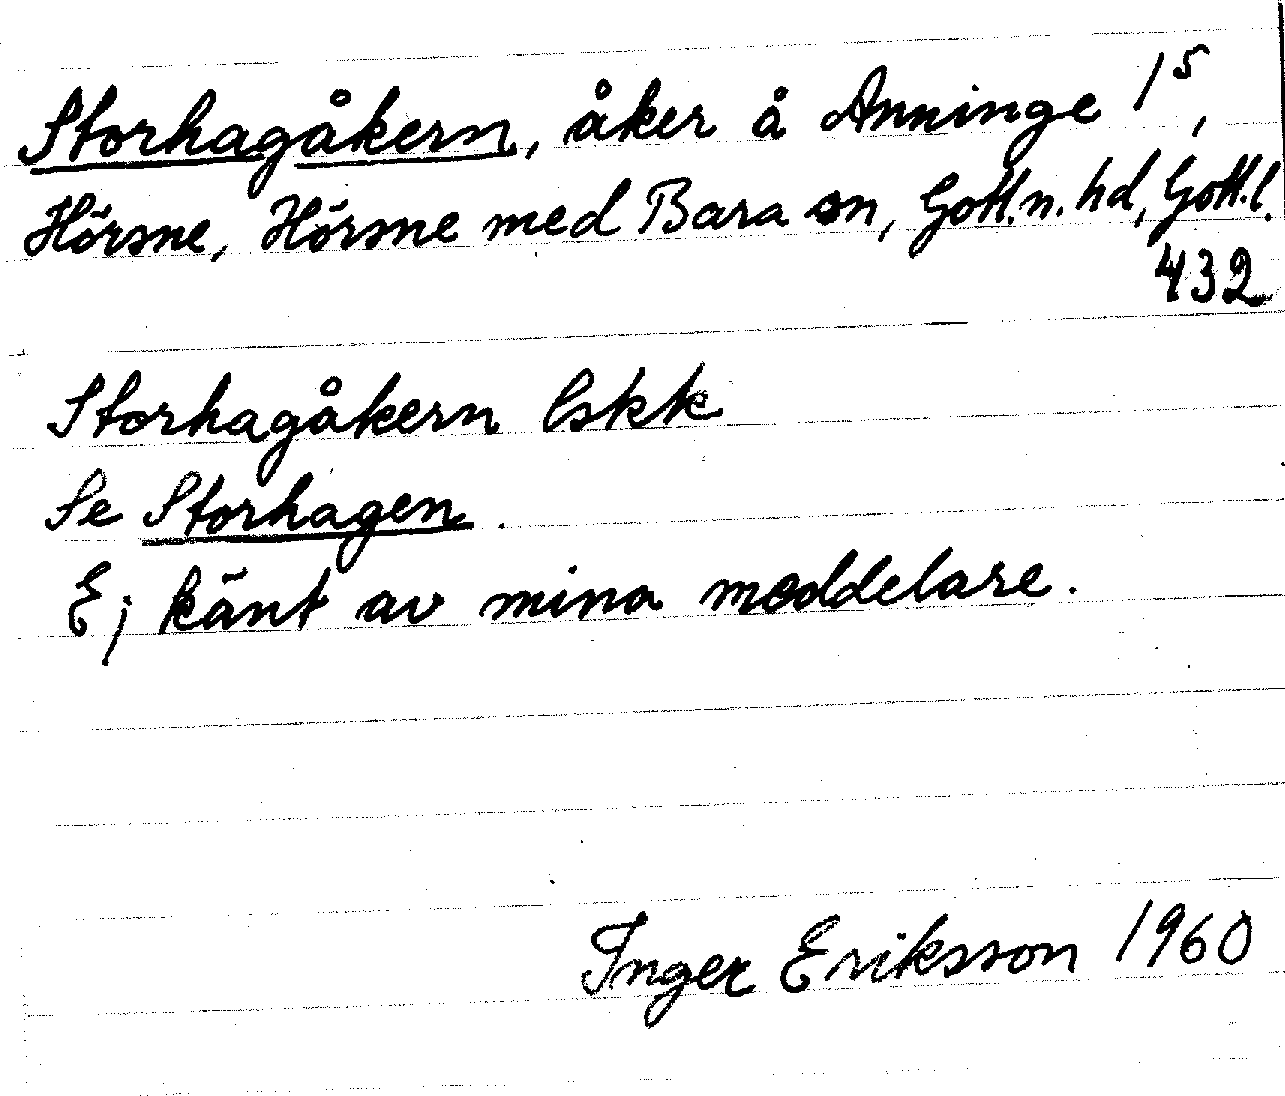 Storhagåkern, åker å Anninge 1⁵,
Hörsne, Hörsne med Bara sn, Gotl.n. hd, Gotl.l.
432
Storhagåkern lskk
Se Storhagen.
Ej känt av mina meddelare.
Inger Eriksson 1960